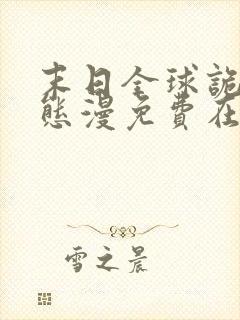 末日全球詭
態漫免費在
雪之晨